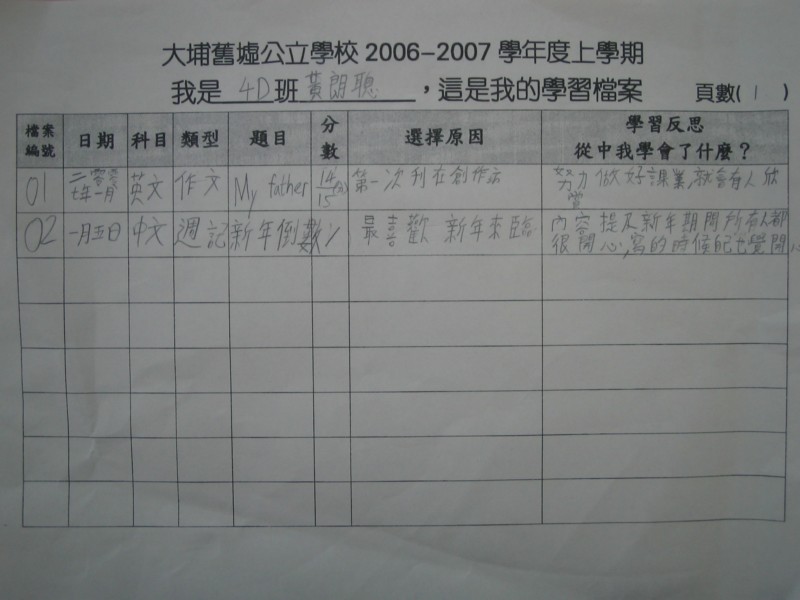 大埔舊墟公立學校 2006-2007 學年度上學期
我是 4D 班 黃朗聰 ，這是我的學習檔案 頁數( 1 )
檔案編號 日期 科目 類型 題目 分數 選擇原因 學習反思
從中我學會了什麼？
01 二零零七年一月 英文 作文 My father 14/15 第一次刊在創作 努力做好課業,就會有人欣賞
02 一月五日 中文 週記 新年倒數 最喜歡 新年來臨 內容提及新年期間所有人都
很開心,寫的時候 也覺開心